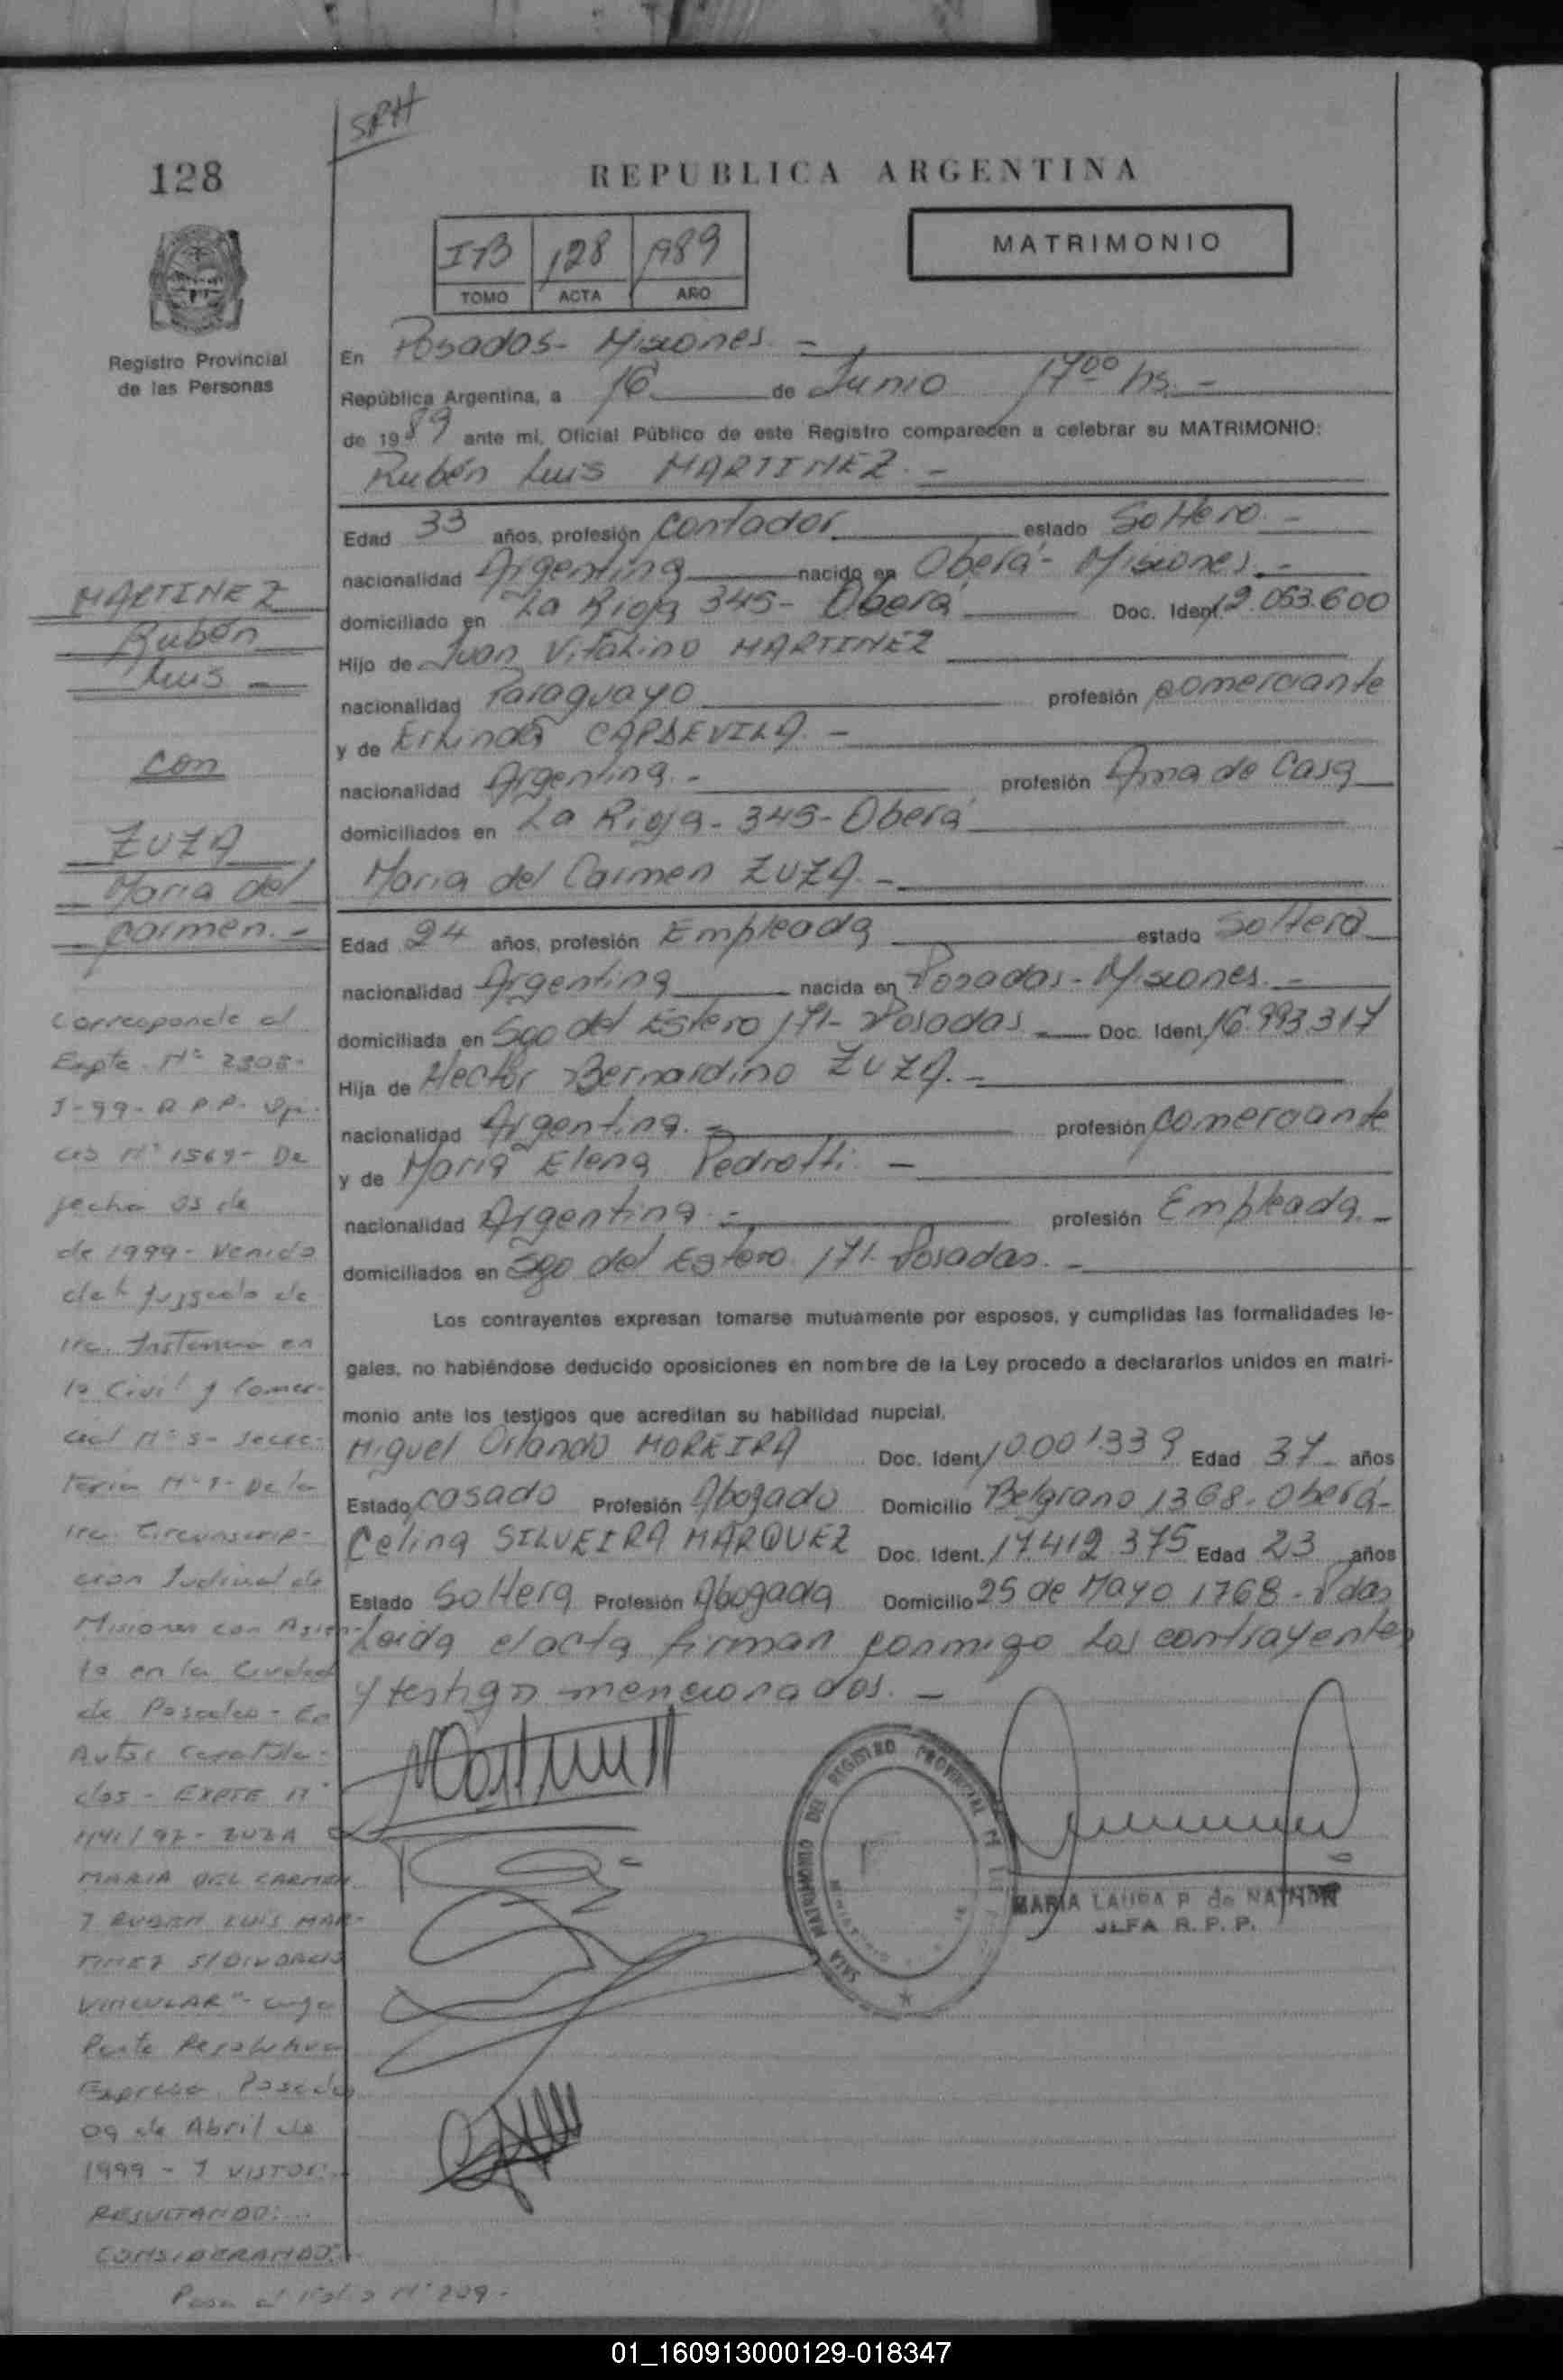 SRH
128
REPUBLICA ARGENTINA
MATRIMONIO
I-B 128 1989
TOMO ACTA AÑO
Registro Provincial
de las Personas
En Posadas- Misiones. -
República Argentina, a 16 de Junio 17⁰⁰ hs. -
de 1989 ante mi, Oficial Público de este Registro comparecen a celebrar su MATRIMONIO:
Rubén Luis MARTINEZ. -
Edad 33 años, profesión Contador estado Soltero. -
nacionalidad Argentina nacido en Oberá- Misiones. -
domiciliado en La Rioja 345- Oberá Doc. Ident. 12.053.600
Hijo de Juan Vitalino MARTINEZ
nacionalidad Paraguayo profesión comerciante
y de Erlinda CAPDEVILA. -
nacionalidad Argentina. - profesión Ama de Casa
domiciliados en La Rioja- 345- Oberá
Maria del Carmen ZUZA. -
Edad 24 años, profesión Empleada estado Soltera
nacionalidad Argentina nacida en Posadas- Misiones. -
domiciliada en Sgo del Estero 171- Posadas Doc. Ident. 16.993.317
Hija de Hector Bernardino ZUZA. -
nacionalidad Argentina. - profesión Comerciante
y de Maria Elena Pedrotti. -
nacionalidad Argentina. - profesión Empleada. -
domiciliados en Sgo del Estero 171- Posadas. -
Los contrayentes expresan tomarse mutuamente por esposos, y cumplidas las formalidades le-
gales, no habiéndose deducido oposiciones en nombre de la Ley procedo a declararlos unidos en matri-
monio ante los testigos que acreditan su habilidad nupcial.
Miguel Orlando MOREIRA Doc. Ident. 10.001.339 Edad 37 años
Estado casado Profesión Abogado Domicilio Belgrano 1368- Oberá-
Celina SILVEIRA MARQUEZ Doc. Ident. 17.412.375 Edad 23 años
Estado Soltera Profesión Abogada Domicilio 25 de Mayo 1768- Pdas
Leida el acta firman conmigo los contrayentes
y testigos mencionados. -
SALA MATRIMONIO DEL REGISTRO PROVINCIAL
MARIA LAURA P. de
JEFA R. P. P.
MARTINEZ
Rubén
Luis -
con
ZUZA
Maria del
Carmen. -
Corresponde al
Expte. Nº 2305-
J-99- R.P.P.
Nº 1569- De
fecha 03 de
de 1999- Venido
del Juzgado de
1ra. Instancia en
lo Civil y Comer-
cial Nº 5- Secre-
taria Nº 1- De la
1ra. Circunscrip-
cion Judicial de
Misiones con Asien-
to en la Ciudad
de Posadas- En
Autos Caratula-
dos- EXPTE Nº
1141/97- ZUZA
MARIA DEL CARMEN
Y RUBEN LUIS MAR-
TINEZ S/DIVORCIO
VINCULAR"- cuya
Parte Resolutiva
Expresa. Posadas
09 de Abril de
1999- Y VISTOS:
RESULTANDO:
CONSIDERANDO:
Pasa al Folio Nº 209-
01_160913000129-018347